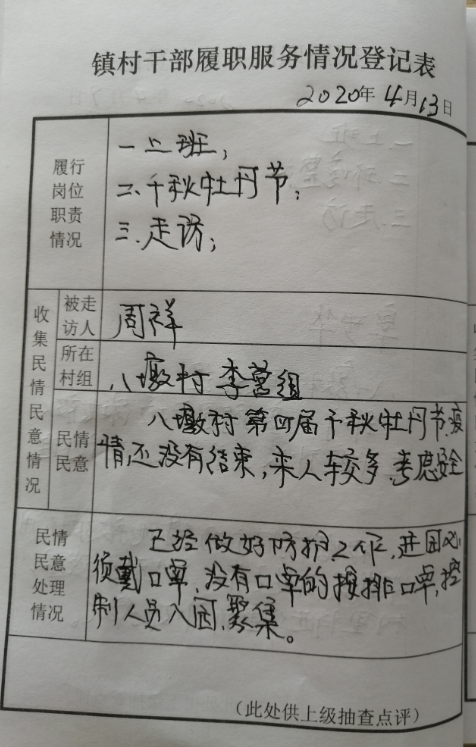 镇村干部履职服务情况登记表
2020年4月13日
履行
岗位
职责
情况
一上班；
二、千秋牡丹节；
三.走访；
收集民情民意情况
被走
访人
周祥
所在
村组
八墩村 李营组
民情
民意
八墩村第四届千秋牡丹节.疫
情还没有结束，来人较多.考虑安全
民情
民意
处理
情况
已经做好防护工作，进园必
须戴口罩，没有口罩的按排口罩，控
制人员入园，聚集。
（此处供上级抽查点评）